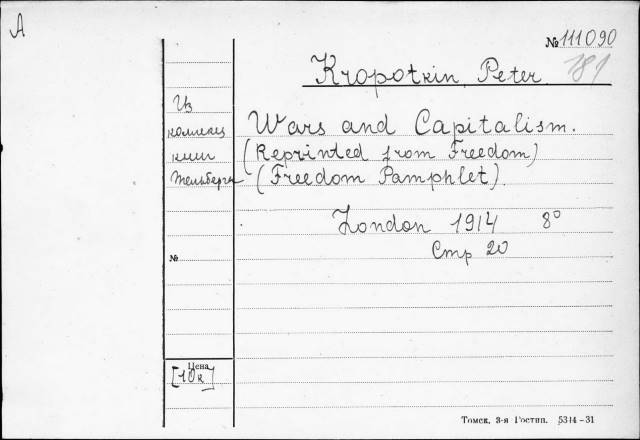 A
№ 111090
181
Kropotkin, Peter
Из
коллекц
нии
Тельберга
Wars and Capitalism.
(Reprinted from Freedom)
(Freedom Pamphlet).
London 1914 8°
Стр 20
№
Цена
[10к]
Томск. 3-я Гостип. 5344-31